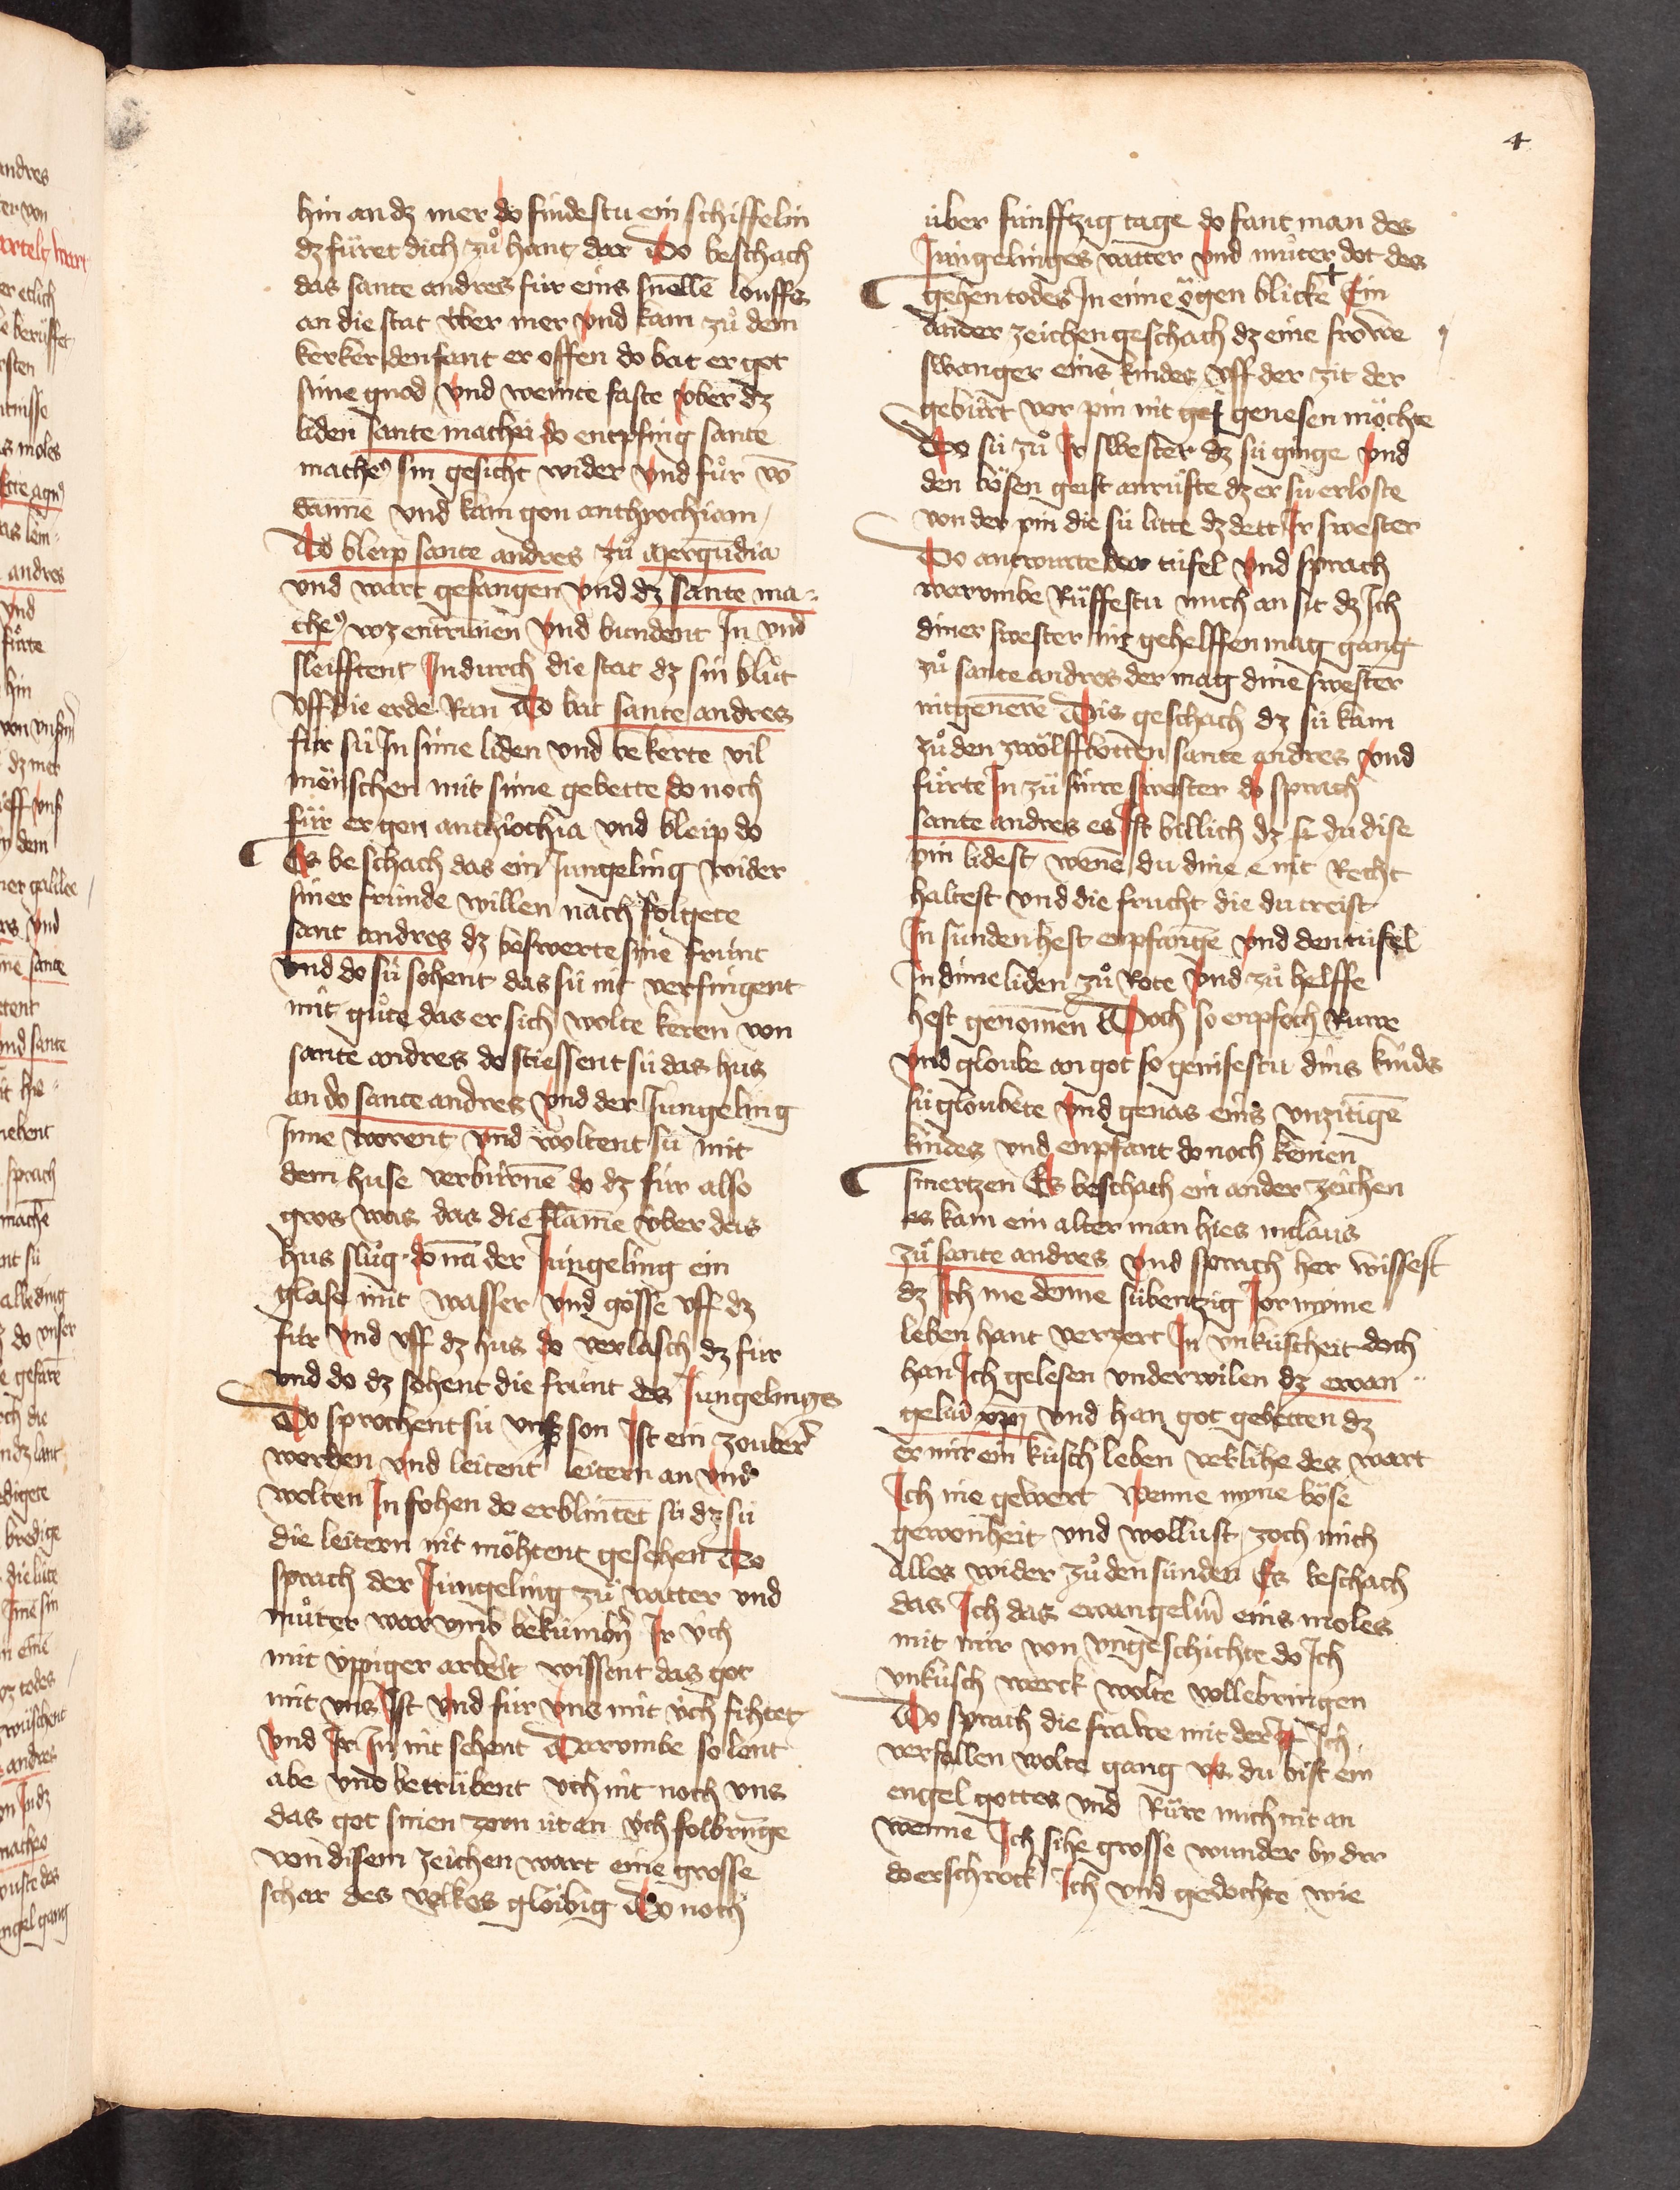 4
hin an dz mer do findestu ein schiffelin
dz füret dich zuͦ hant dar Do beschach
das sante andres für eins snellē louffes
an die stat v̈ber mer vnd kam zuͦ dem
kerker den fant er offen do bat er got
sine gnod vnd weinte faste vber dz
liden sante mathei do entpfing sante
matheꝰ sin gesicht wider vnd fuͦr vō
dānnē vnd kam gon anthyochiam
Do bleip sante andres zuͦ Mergundia
vnd wart gefangen vnd dz sante ma-
theꝰ wz entrunnen vnd bundent In vnd
sleifftent In durch die stat dz sin bluͦt
vff die erde Ran Do bat sante andres
für sü In sime liden vnd bekerte vil
mönschen mit sime gebette do noch
fuͦr er gen anthiochia vnd bleip do
Es beschach das ein Jungeling wider
siner fründe willen nach folgete
sant andres dz beswerte sine frunt
vnd do sü sohent das sü nit verfingent
mit guͦte das er sich wolte keren von
sante andres do stiessent sü das hus
an do sante andres vnd der Jungeling
Inne worent vnd woltent sü mit
dem huse verbürnē do dz für also
gros was das die flāme v̈ber das
hus sluͦg do nā der Jungeling ein
glase mit wasser vnd gösse vff dz
für vnd vff dz hus do verlasch dz für
vnd do dz sohent die frünt des Jungelings
Do sprochent sü vnser son Ist ein zoubrer
worden vnd leitent leitern an vnd
wolten In fohen do erblintēt sü dz sü
die leitern nit möhtent gesehen Do
sprach der Jungeling zuͦ vatter vnd
muͦter war vmb bekümbn̄ Ir v̈ch
mit v̈ppiger arbeit wissent das got
mit vns Ist vnd für vns mit v̈ch fihtet
vnd Ir In nit sehent Darumbe so lont
abe vnd betrübent v̈ch nit noch vns
das got sinen zorn üt an v̈ch folbringe
von disem zeichen wart eine grosse
schar des volkes glöibig Do noch
über fünfftzig tage do fant man des
Jungelinges vatter vnd muͦter dot des
gehen todes In eime ögen blicke Ein
ander zeichen geschach dz eine frowe
swanger eins kindes vff der zit der
geburt vor pin nit genesen möchte
Do sü zuͦ Ir swester dz sü ginge vnd
den bösen geist anruͦfte dz er sü erloste
von der pin die sü litte dz dett Ir swester
Do antwurte der tüfel vnd sprach
warumbe Rüffestu mich an sit dz Ich
diner swester nit gehelffen mag gang
zuͦ sante andres der mag dine swester
nit generē Dis geschach dz sü kam
zuͦ den zwölffbotten sante andres vnd
fuͦrte In zuͦ sinre swester do sprach
sante andres es Ist billich dz du dise
pin lidest wenē du dine e nit Recht
haltest vnd die frucht die du treist
In sunden hest enpfangē vnd den tüfel
In dime liden zuͦ Rote vnd zuͦ helffe
hest genomen Doch so enpfoch Ruwe
vnd gloube an got so genisestu dins kinds
sü gloubete vnd genas eins vnzitigē
kindes vnd enpfant do noch keinen
smertzen Es beschach ein ander zeichen
es kam ein alter man hies niclaus
zuͦ sante andres vnd sprach her wissest
dz Ich me denne sübentzig Jor myme
leben hant verzert In vnküscheit doch
han Ich gelesen vnderwilen dz ewan-
geliū xp̄i vnd han got gebetten dz
er mir ein küsch leben verlihe des wart
Ich nie gewert wenne myne böse
gewonheit vnd wollust zoch mich
alles wider zuͦ den sünden Es beschach
das Ich das ewangeliū eins moles
mit mir von vngeschichte do Ich
vnküsch werck wolte vollebringen
Do sprach die frawe mit der Ich
verfallen wolte gang vs du bist ein
engel gottes vnd Rüre mich nit an
wenne Ich sihe grosse wunder by dir
do erschrock Ich vnd gedochte wie